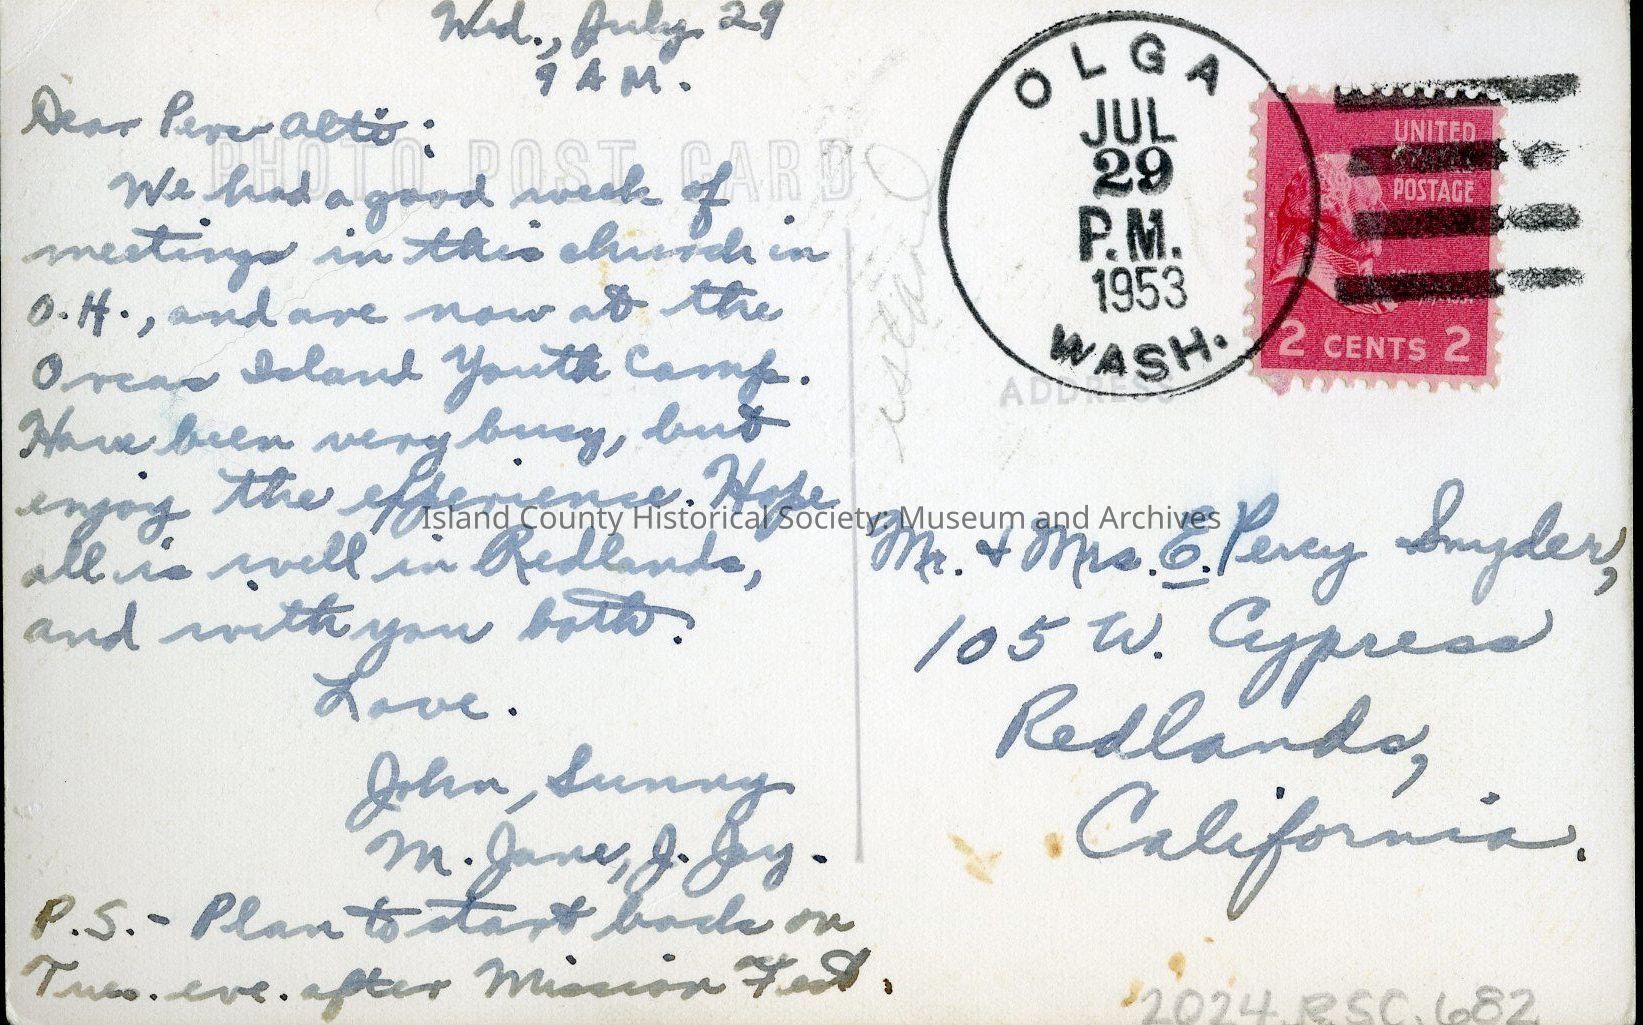 Wed., July 29
9 A M.
Dear Perc Alto:
PHOTO POST CARD
We had a good week of
meetings in this church in
O.H., and are now at the
Orcas Island Youth Camp.
Have been very busy, but
enjoy the experience. Hope
all is well in Redlands,
and with you both.
Love.
John, Sunny
M. Jane, J. Jay.
P.S. - Plan to start back on
Tues. eve. after Mission Fest.
OLGA
JUL
29
P.M.
1953
WASH.
UNITED
STATES
POSTAGE
2 CENTS 2
ADDRESS
Island County Historical Society: Museum and Archives
Mr. & Mrs. E. Percy Snyder,
105 W. Cypress
Redlands,
California.
2024.RSC.682